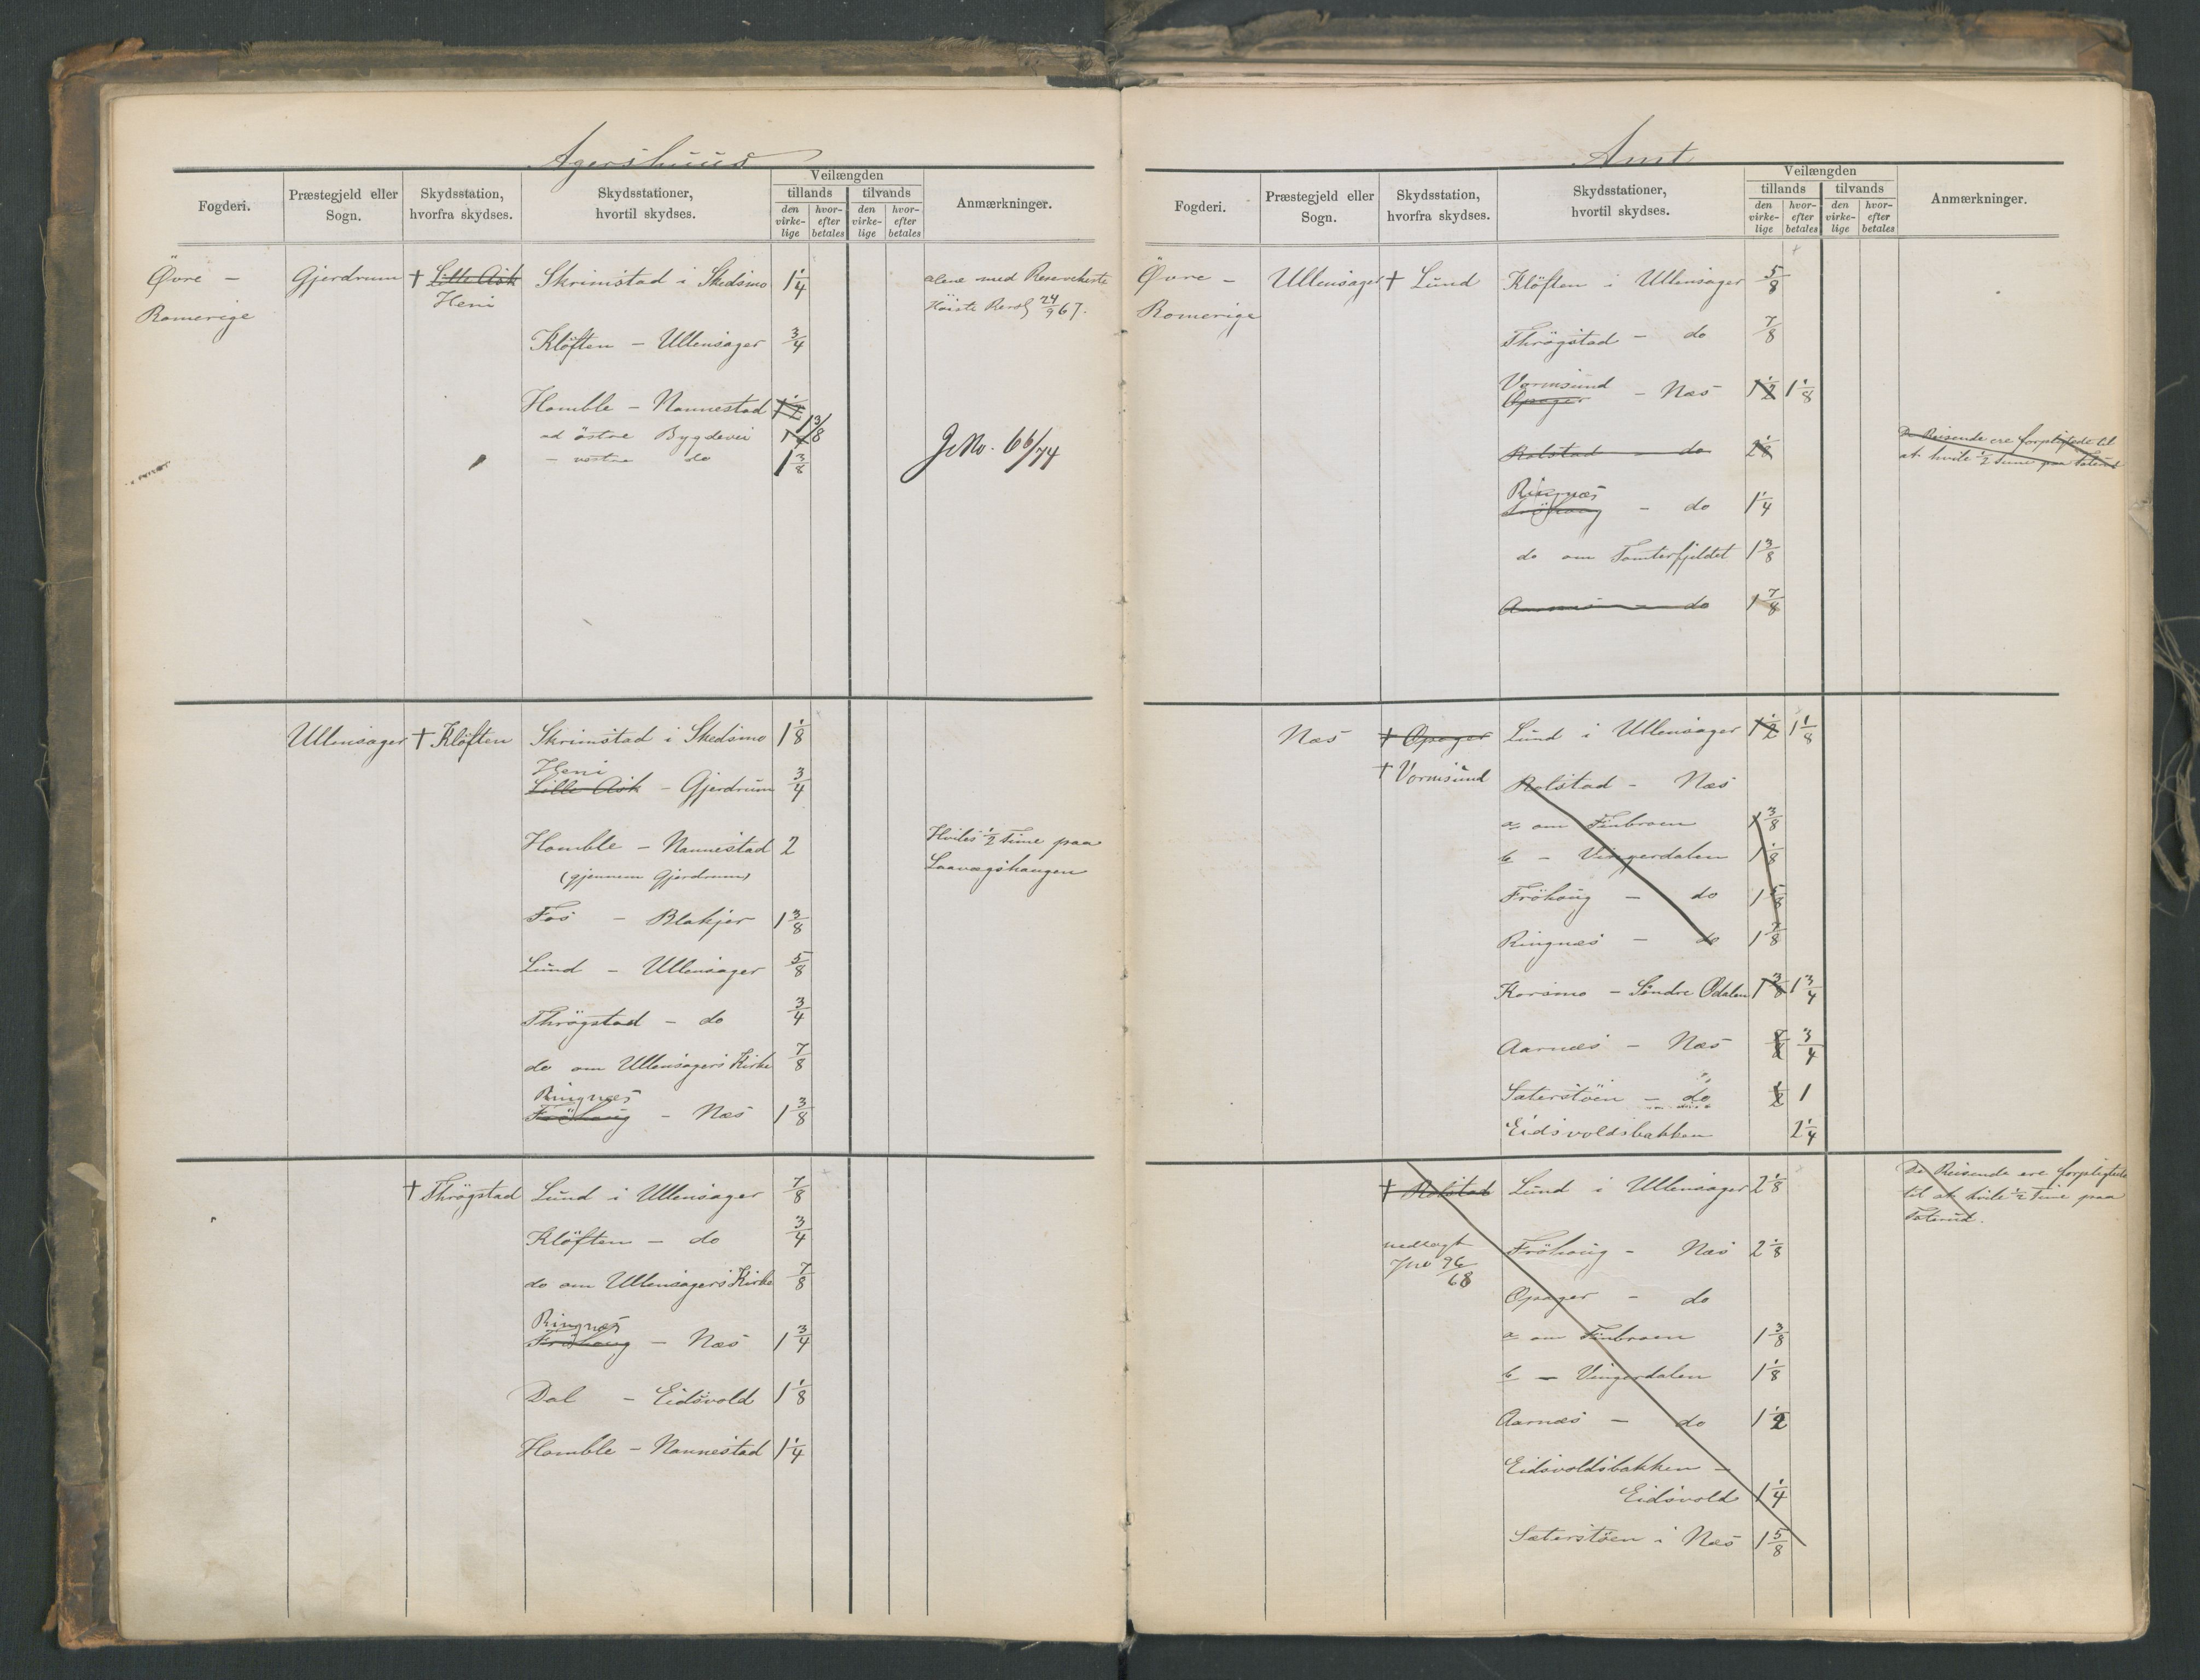 Agershuus
Fogderi.
Præstegjeld eller
Sogn.
Skydsstation,
hvorfra skydses.
Skydsstationer,
hvortil skydses.
Veilængden
tillands
tilvands
den
virke-
lige
hvor-
efter
betales
den
virke-
lige
hvor-
efter
betales
Anmærkninger.
Øvre - Gjerdrum † Lille Ask Skrimstad i Skedsmo 1 1/4 alene med Reserveheste
Romerige Heni 24/9 67.
Klöften - Ullensager 3/4
Homble - Nannestad 1 1/2
ad östre Bygdevei 1 3/8
- vestre do 1 3/8
JNo. 66/74
Ullensager † Klöften Skrimstad i Skedsmo 1 1/8
Heni
Lille Ask - Gjerdrum 3/4
Homble - Nannestad 2 Hviles 1/2 Time paa
(gjennem Gjerdrum) Laavegshaugen
Fos - Blakjer 1 3/8
Lund - Ullensager 5/8
Thrögstad - do 3/4
do om Ullensagers Kirke 7/8
Ringnæs
Fröhaug - Næs 1 3/8
† Thrögstad Lund i Ullensager 7/8
Klöften - do 3/4
do om Ullensagers Kirke 7/8
Ringnæs
Fröhaug - Næs 1 3/4
Dal - Eidsvold 1 1/8
Homble - Nannestad 1 1/4
Amt
Fogderi.
Præstegjeld eller
Sogn.
Skydsstation,
hvorfra skydses.
Skydsstationer,
hvortil skydses.
Veilængden
tillands
tilvands
den
virke-
lige
hvor-
efter
betales
den
virke-
lige
hvor-
efter
betales
Anmærkninger.
Øvre - Ullensager † Lund Klöften i Ullensager 5/8
Romerige
Thrögstad - do 7/8
Vormsund
Opager - Næs 1 1/2 1 1/8
Rolstad - do 2 1/8 De Reisende ere forpligtede til
at hvile 1/2 Time paa Taterud
Ringnæs
Fröhaug - do 1 1/4
do om Tomterfjeldet 1 3/8
Aarnæs - do 1 7/8
Næs † Opager Lund i Ullensager 1 1/2 1 1/8
† Vormsund
Rolstad - Næs
a om Finbroen 1 3/8
b - Vingerdalen 1 1/8
Fröhaug - do 1 5/8
Ringnæs - do 1 7/8
Korsmo - Söndre Odalen 1 3/8 1 3/4
Aarnæs - Næs 3/4
Sæterstöen - do 1/2 1
Eidsvoldsbakken 2 1/4
† Rolstad Lund i Ullensager 2 1/8 De Reisende ere forpligtede
til at hvile 1/2 Time paa
Taterud.
nedlagt Fröhaug - Næs 2 1/8
Jno 96/68
Opager - do
a om Finbroen 1 3/8
b - Vingerdalen 1 1/8
Aarnæs - do 1 1/2
Eidsvoldsbakken -
Eidsvold 1 1/4
Sæterstöen i Næs 1 5/8